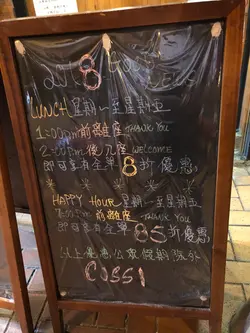 8
LUNCH 星期一至星期五
1:00pm前離座 THANK YOU
2:00pm後入座 WELCOME
即可享有全單8折優惠
HAPPY HOUR 星期一至星期五
8:00pm前離座 THANK YOU
即可享有全單85折優惠
以上優惠公眾假期除外